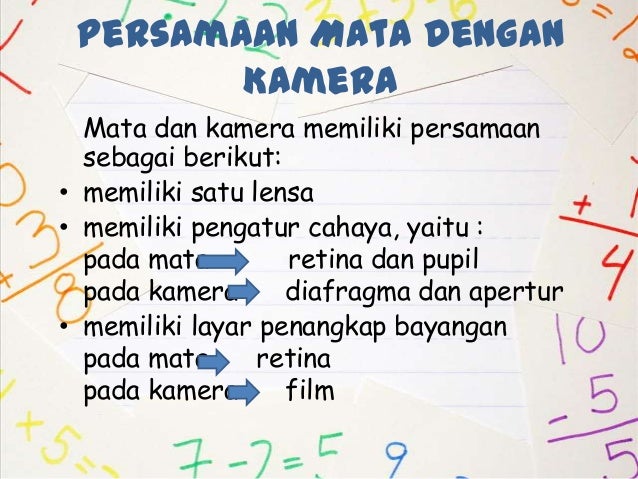 PERSAMAAN MATA DENGAN
KAMERA
Mata dan kamera memiliki persamaan
sebagai berikut:
• memiliki satu lensa
• memiliki pengatur cahaya, yaitu :
pada mata retina dan pupil
pada kamera diafragma dan apertur
• memiliki layar penangkap bayangan
pada mata retina
pada kamera film
+ 1
4
3
8
10
- 5
5
+5=
7-2=5
9